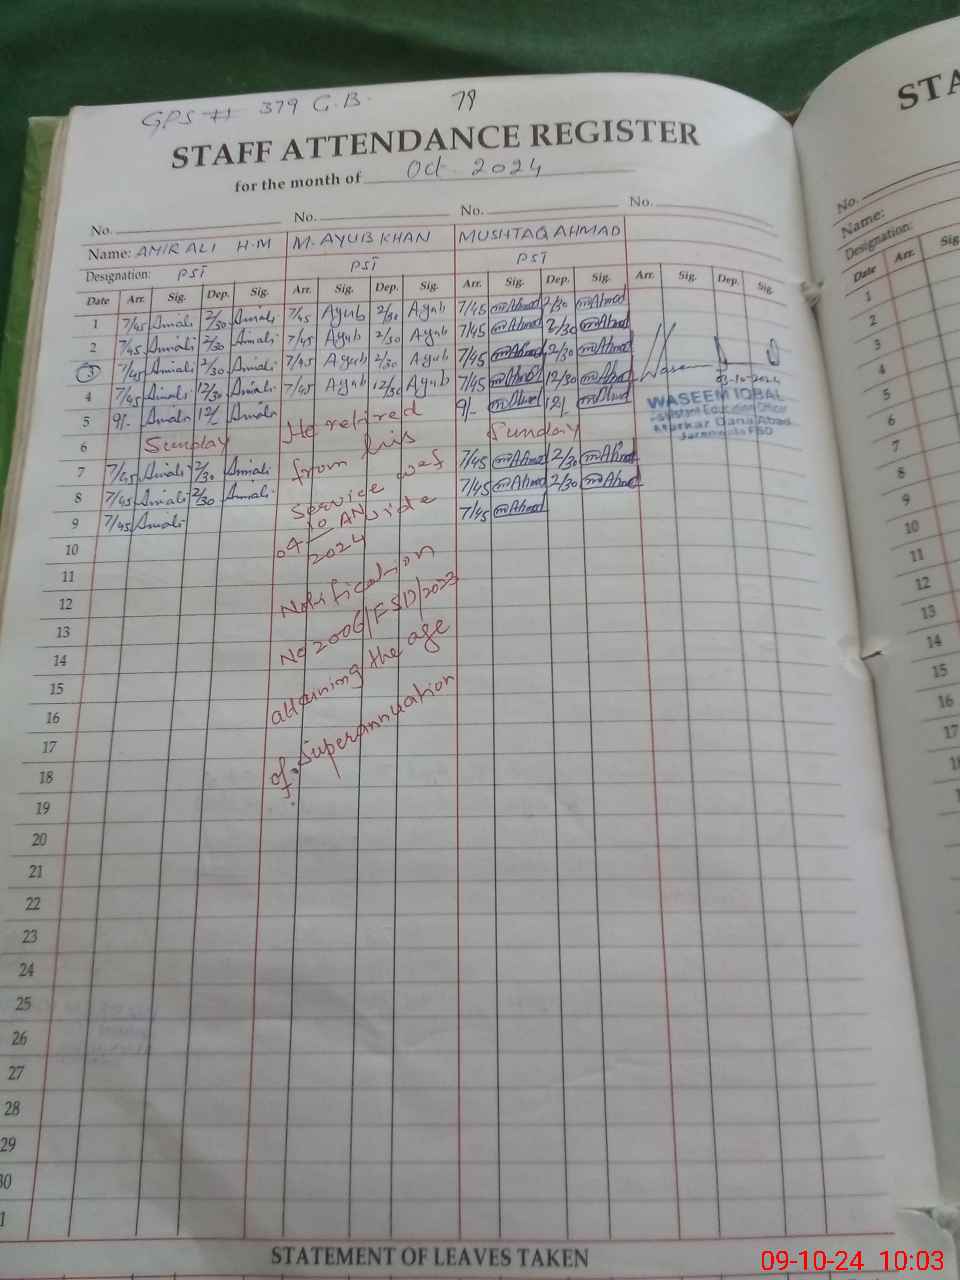 GPS # 379 G.B. 79
STAFF ATTENDANCE REGISTER
for the month of Oct 2024
No. No. No. No.
Name: AMIR ALI H.M M. AYUB KHAN MUSHTAQ AHMAD
Designation: PST PST PST
Date Arr. Sig. Dep. Sig. Arr. Sig. Dep. Sig. Arr. Sig. Dep. Sig. Arr. Sig. Dep. Sig.
1 7/45 Amirali 2/30 Amirali 7/45 Ayub 2/30 Ayub 7/45 mAhmad 2/30 mAhmad
2 7/45 Amirali 2/30 Amirali 7/45 Ayub 2/30 Ayub 7/45 mAhmad 2/30 mAhmad
3 7/45 Amirali 2/30 Amirali 7/45 Ayub 2/30 Ayub 7/45 mAhmad 2/30 mAhmad
4 7/45 Amirali 12/30 Amirali 7/45 Ayub 12/30 Ayub 7/45 mAhmad 12/30 mAhmad
5 9/- Amirali 12/ Amirali 9/- mAhmad 12/- mAhmad
6 Sunday Sunday
7 7/45 Amirali 2/30 Amirali 7/45 mAhmad 2/30 mAhmad
8 7/45 Amirali 2/30 Amirali 7/45 mAhmad 2/30 mAhmad
9 7/45 Amirali 7/45 mAhmad
10
11
12
13
14
15
16
17
18
19
20
21
22
23
24
25
26
27
28
29
30
1
He retired
from his
service wef
04-10 AN vide
2024
Notification
No 2006/FSD/2023
attaining the age
of superannuation
Waseem
03-10-2024
WASEEM IQBAL
Assistant Education Officer
Markaz Dana Abad
Jaranwala FSD
STATEMENT OF LEAVES TAKEN
STA
No.
Name:
Designation:
Date Arr. Sig
1
2
3
4
5
6
7
8
9
10
11
12
13
14
15
16
17
09-10-24 10:03